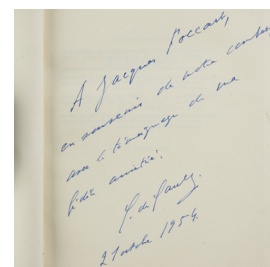 A Jacques Foccart,
en souvenir de notre
avec le témoignage de ma
fidèle amitié.
C. de Gaulle.
21 octobre 1954.